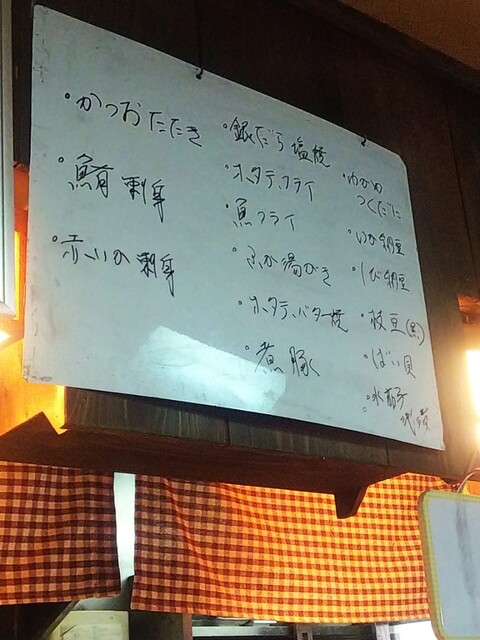 ・かつおたたき
・鮪刺身
・赤いか刺身
・銀だら塩焼
・ホタテフライ
・魚フライ
・ふか湯がき
・ホタテバター焼
・煮豚
・わかめ
つくだに
・いか納豆
・しび納豆
・枝豆(黒)
・ばい貝
・水茄子
浅漬